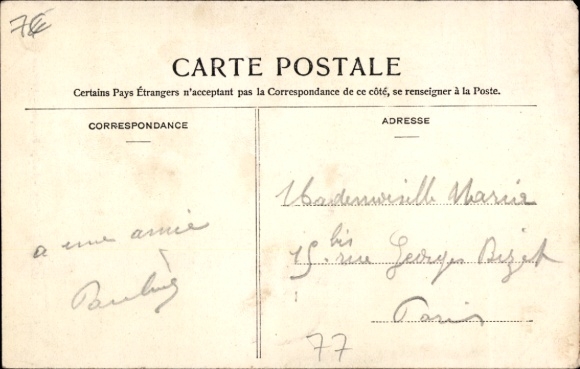 7€
CARTE POSTALE
Certains Pays Étrangers n'acceptent pas la Correspondance de ce côté, se renseigner à la Poste.
CORRESPONDANCE
a une amie
ADRESSE
Mademoiselle Maria
15 bis rue Georges Bizet
Paris
77